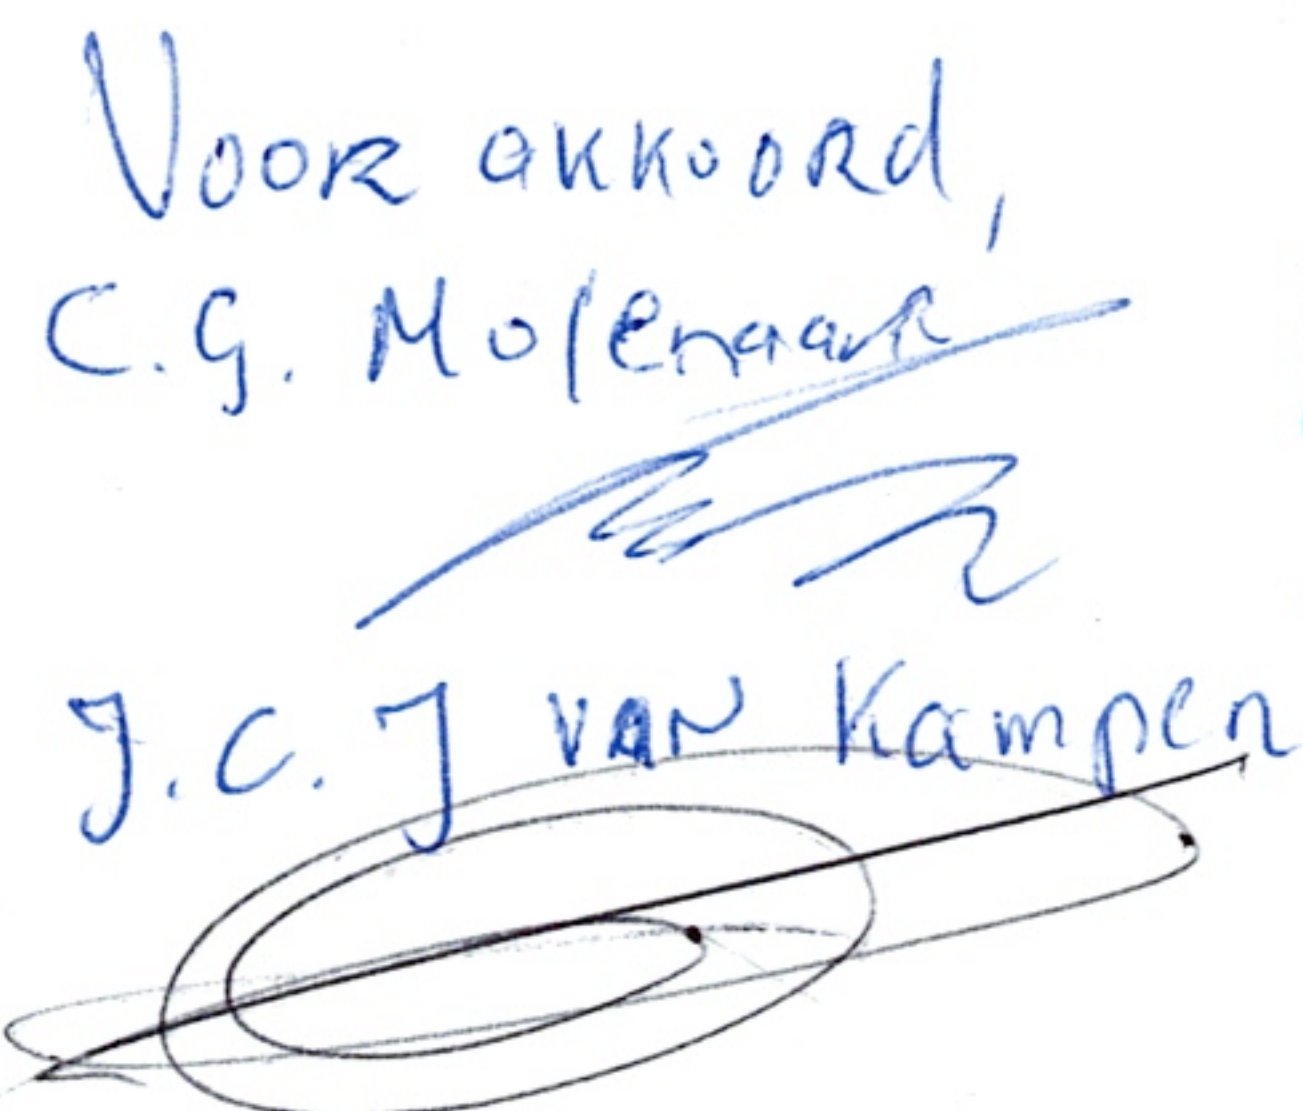 Voor akkoord,
C.G. Molenaar
J.C.J van Kampen